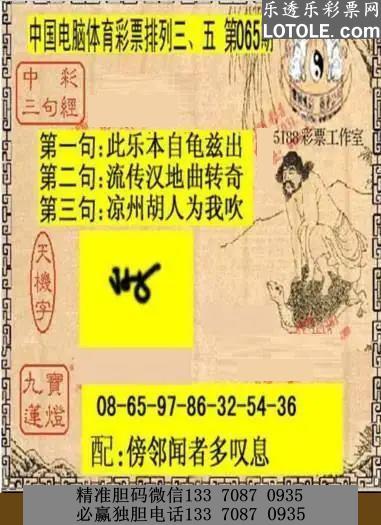 乐透乐彩票网
LOTOLE.COM
中国电脑体育彩票排列三、五 第065期
中彩
三句經
5188彩票工作室
第一句:此乐本自龟兹出
第二句:流传汉地曲转奇
第三句:凉州胡人为我吹
天機字
九寶
蓮燈
08-65-97-86-32-54-36
配:傍邻闻者多叹息
精准胆码微信133 7087 0935
必赢独胆电话133 7087 0935